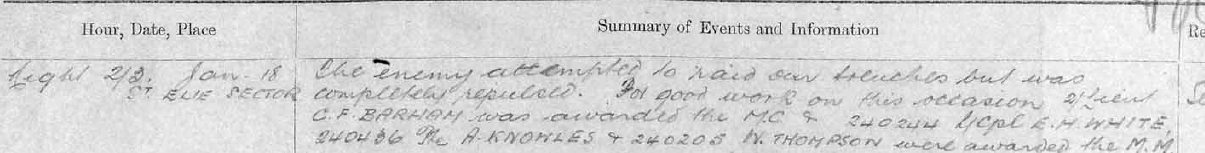 Hour, Date, Place Summary of Events and Information
Night 2/3. Jan. 18 The enemy attempted to raid our trenches but was
ST. ELIE SECTOR completely repulsed. For good work on this occasion 2/Lieut
C.F. BARHAM was awarded the M.C & 240244 L/Cpl E.H. WHITE,
240436 Pte A. KNOWLES & 240205 W. THOMPSON were awarded the M.M